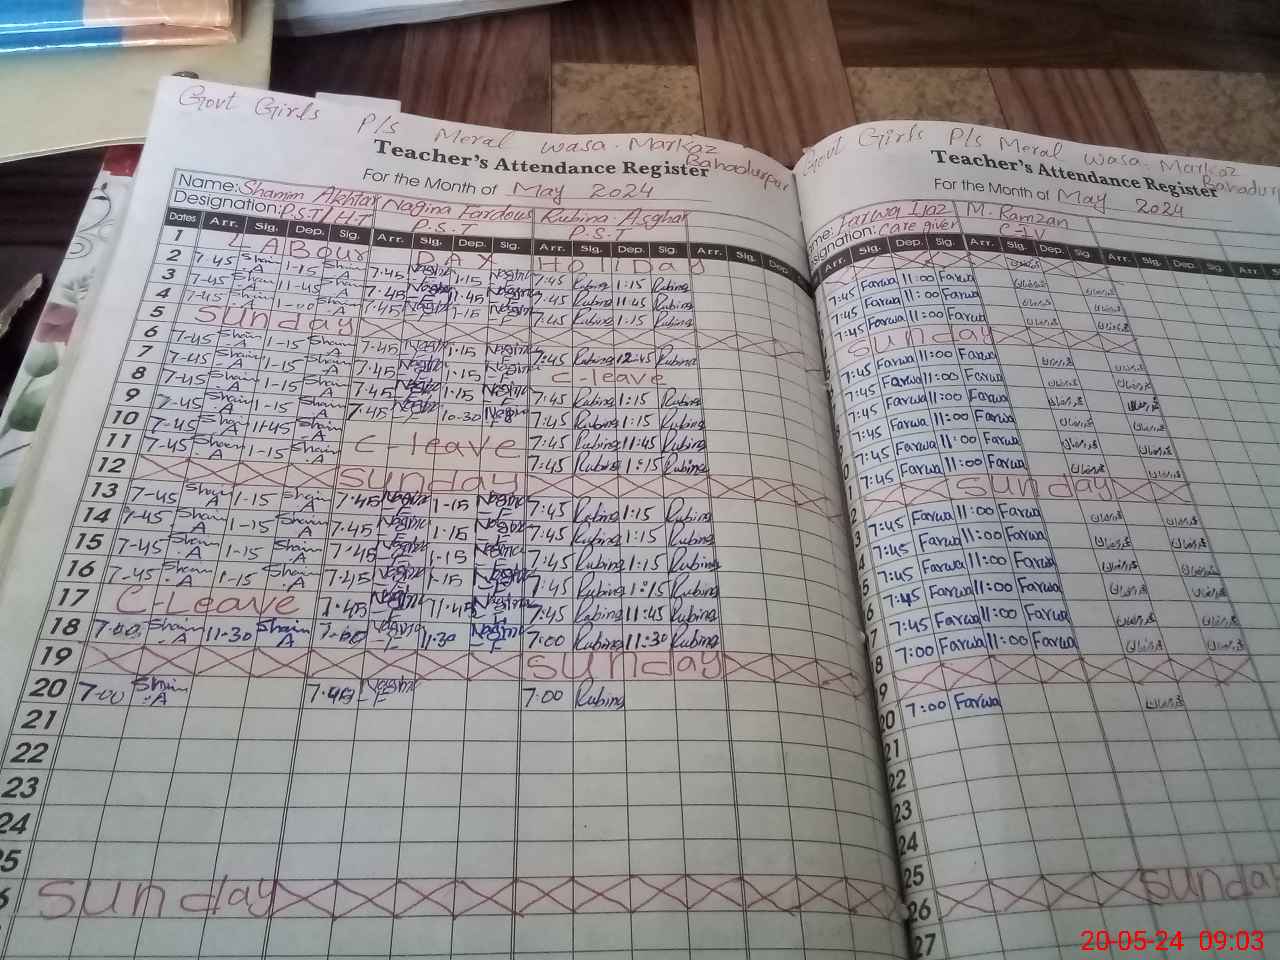 Govt Girls P/s Meral wasa. Markaz Bahadurpur
Teacher's Attendance Register
For the Month of May 2024
Name: Shamim Akhtar Nagina Fardous Rubina Asghar
Designation: P.S.T/H.T P.S.T P.S.T
Dates Arr. Sig. Dep. Sig. Arr. Sig. Dep. Sig. Arr. Sig. Dep. Sig. Arr. Sig. Dep.
1 LABour DAY HollDay
2 7-45 Sham A 1-15 Sham 7.45 Nagina 1.15 Nagina 7:45 Rubina 1:15 Rubina
3 7-45 Sham A 11-45 Sham 7.45 Nagina 11.45 Nagina 7:45 Rubina 11:45 Rubina
4 7-45 Sham A 1-00 Sham A 7.45 Nagina 1.15 Nagina F 7:45 Rubina 1:15 Rubina
5 Sunday
6 7-45 Sham A 1-15 Sham 7.45 Nagina 1.15 Nagina F 7:45 Rubina 12:45 Rubina
7 7-45 Sham A 1-15 Sham A 7.45 Nagina 1.15 Nagina F C-leave
8 7-45 Sham A 1-15 Sham A 7.45 Nagina 1.15 Nagina 7:45 Rubina 1:15 Rubina
9 7-45 Sham A 1-15 Sham A 7.45 Nagina 10.30 Nagina 7:45 Rubina 1:15 Rubina
10 7-45 Sham A 11-45 Sham A C-leave 7:45 Rubina 11:45 Rubina
11 7-45 Sham A 1-15 Sham A 7:45 Rubina 1:15 Rubina
12 Sunday
13 7-45 Sham A 1-15 Sham A 7.45 Nagina 1-15 Nagina 7:45 Rubina 1:15 Rubina
14 7-45 Sham A 1-15 Sham A 7.45 Nagina F 1.15 Nagina 7:45 Rubina 1:15 Rubina
15 7-45 Sham A 1-15 Sham A 7.45 Nagina 1-15 Nagina 7:45 Rubina 1:15 Rubina
16 7-45 Sham A 1-15 Sham A 7.45 Nagina 1-15 Nagina 7:45 Rubina 1:15 Rubina
17 C-Leave 7.45 Nagina 11.45 Nagina 7:45 Rubina 11:45 Rubina
18 7-00 Sham A 11-30 Sham A 7-00 Nagina F 11.30 Nagina F 7:00 Rubina 11:30 Rubina
19 Sunday
20 7-00 Sham A 7.45 Nagina F 7:00 Rubina
21
22
23
24
25
Sunday
Govt Girls P/s Meral wasa. Markaz Bahadur
Teacher's Attendance Register
For the Month of May 2024
Farwa Ijaz M. Ramzan
Designation: Care giver C-IV
Arr. Sig. Dep. Sig. Arr. Sig. Dep. Sig. Arr. Sig. Dep. Sig. Arr.
7:45 Farwa 11:00 Farwa
7:45 Farwa 11:00 Farwa
7:45 Farwa 11:00 Farwa
Sunday
7:45 Farwa 11:00 Farwa
7:45 Farwa 11:00 Farwa
7:45 Farwa 11:00 Farwa
7:45 Farwa 11:00 Farwa
7:45 Farwa 11:00 Farwa
7:45 Farwa 11:00 Farwa
Sunday
7:45 Farwa 11:00 Farwa
7:45 Farwa 11:00 Farwa
7:45 Farwa 11:00 Farwa
7:45 Farwa 11:00 Farwa
7:45 Farwa 11:00 Farwa
7:00 Farwa 11:00 Farwa
20 7:00 Farwa
21
22
23
24
25 Sunday
26
27
20-05-24 09:03